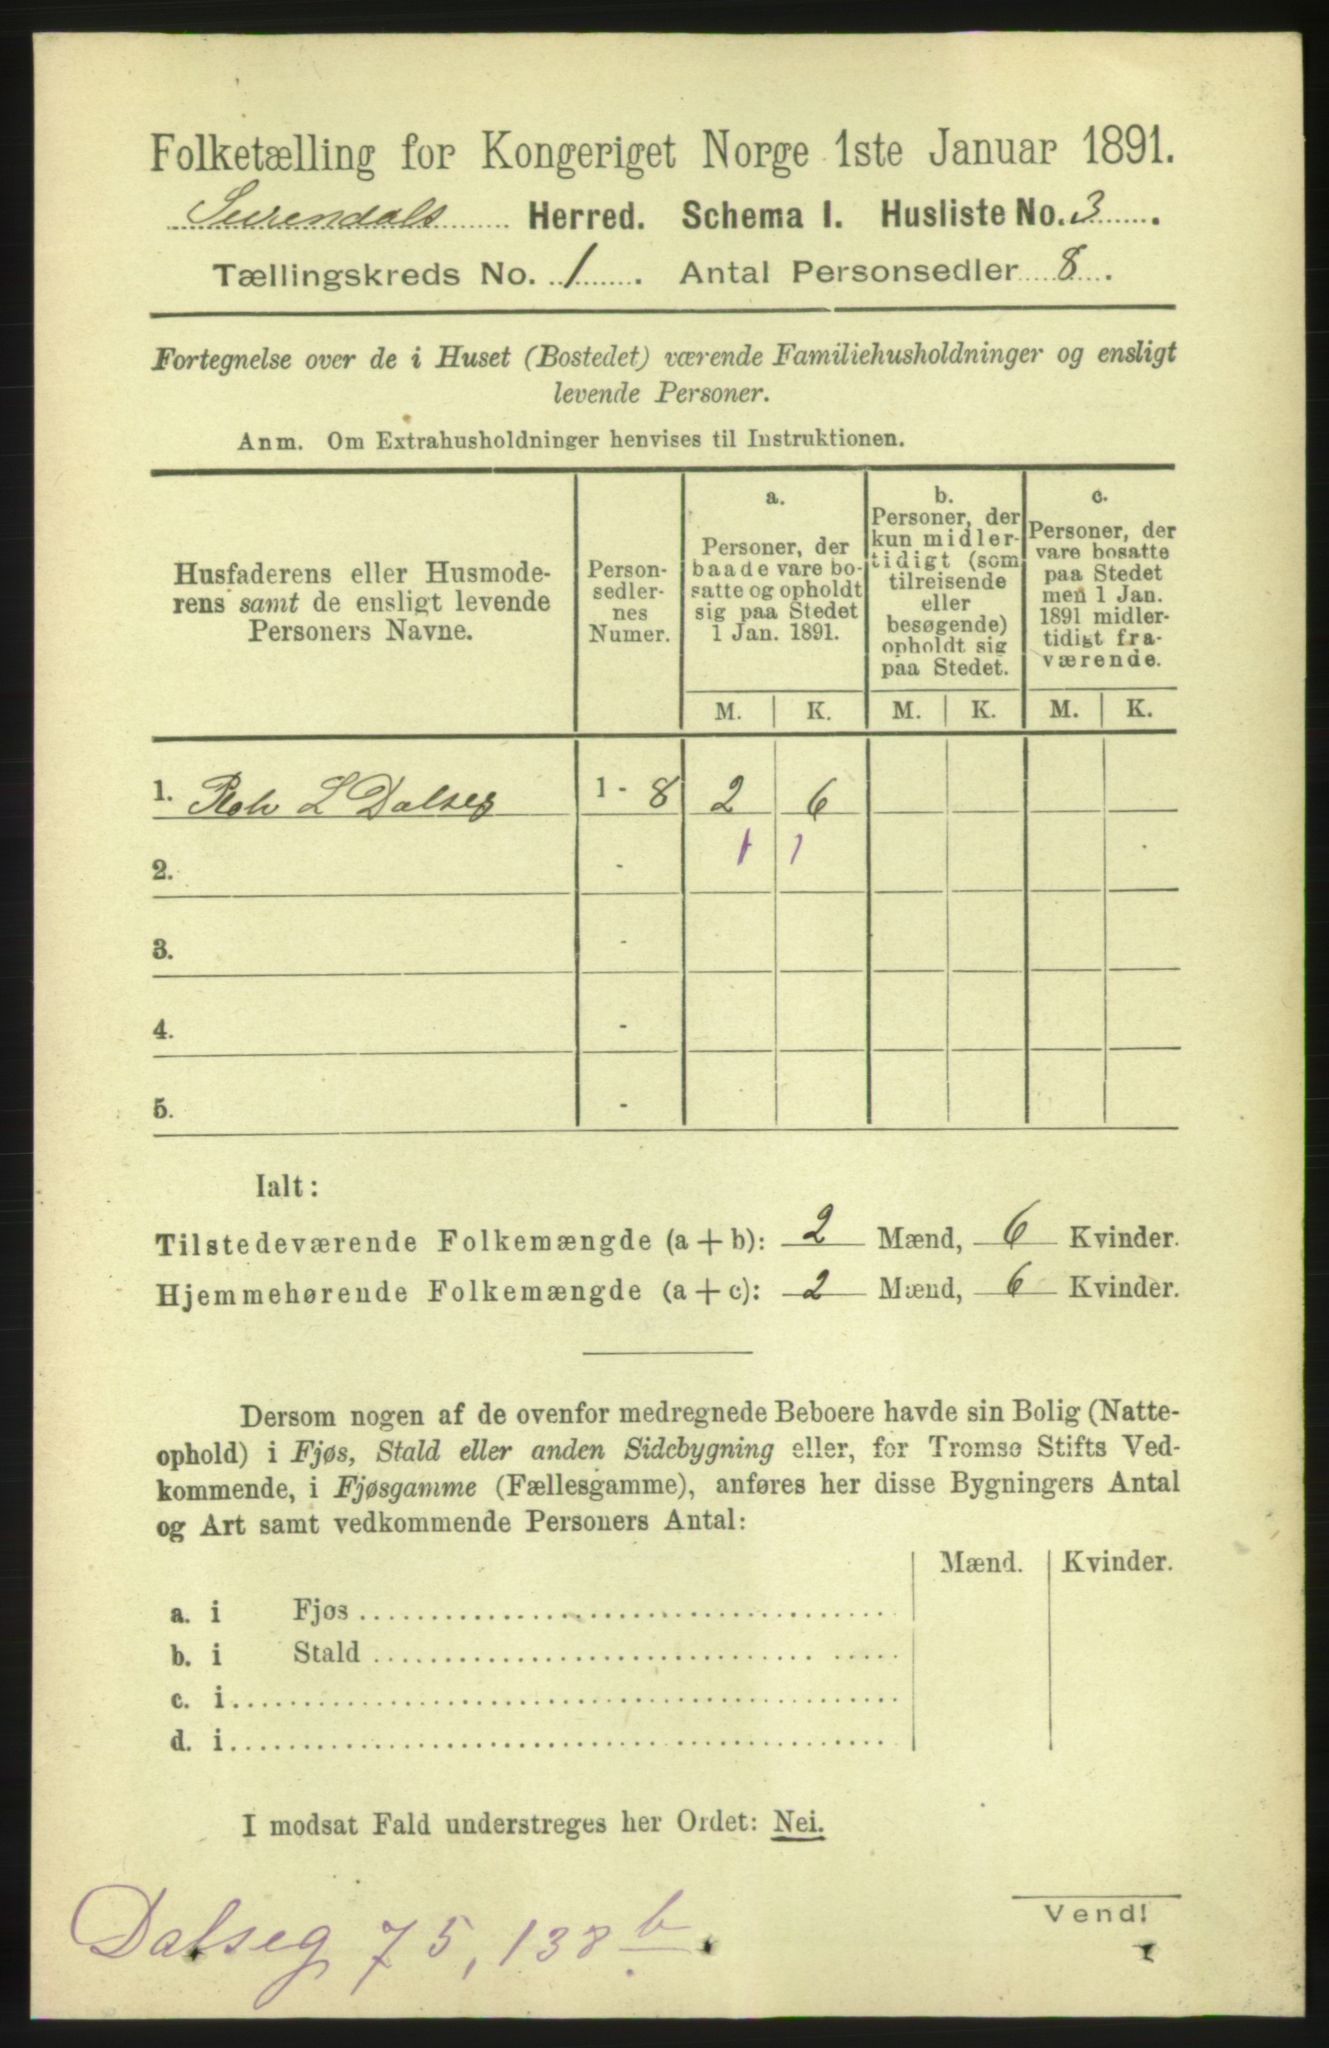 Folketælling for Kongeriget Norge 1ste Januar 1891.
Surendals Herred. Schema I. Husliste No. 3.
Tællingskreds No. 1. Antal Personsedler 8.
Fortegnelse over de i Huset (Bostedet) værende Familiehusholdninger og ensligt
levende Personer.
Anm. Om Extrahusholdninger henvises til Instruktionen.
Husfaderens eller Husmode-
rens samt de ensligt levende
Personers Navne.
Person-
sedler-
nes
Numer.
a.
Personer, der
baade vare bo-
satte og opholdt
sig paa Stedet
1 Jan. 1891.
b.
Personer, der
kun midler-
tidigt (som
tilreisende
eller
besøgende)
opholdt sig
paa Stedet.
c.
Personer, der
vare bosatte
paa Stedet
men 1 Jan.
1891 midler-
tidigt fra-
værende.
M. K. M. K. M. K.
1. L Dalseg 1 - 8 2 6
2. - 1 1
3. -
4. -
5. -
Ialt:
Tilstedeværende Folkemængde (a + b): 2 Mænd, 6 Kvinder.
Hjemmehørende Folkemængde (a + c): 2 Mænd, 6 Kvinder.
Dersom nogen af de ovenfor medregnede Beboere havde sin Bolig (Natte-
ophold) i Fjøs, Stald eller anden Sidebygning eller, for Tromsø Stifts Ved-
kommende, i Fjøsgamme (Fællesgamme), anføres her disse Bygningers Antal
og Art samt vedkommende Personers Antal:
Mænd. Kvinder.
a. i Fjøs
b. i Stald
c. i
d. i
I modsat Fald understreges her Ordet: Nei.
Vend!
Dalseg 75, 138 b.